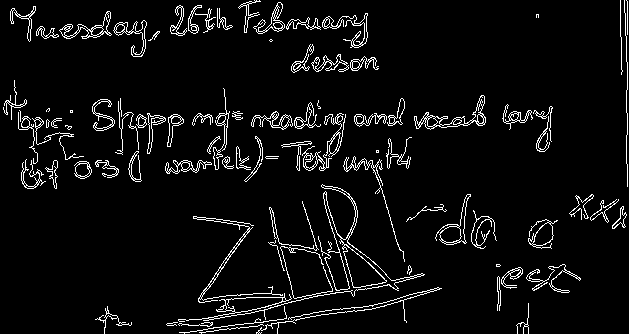 Tuesday, 26th February
Lesson
Topic: Shopping = reading and vocabulary
07.03 (wartek) - Test unit 4
ZHR do
jest